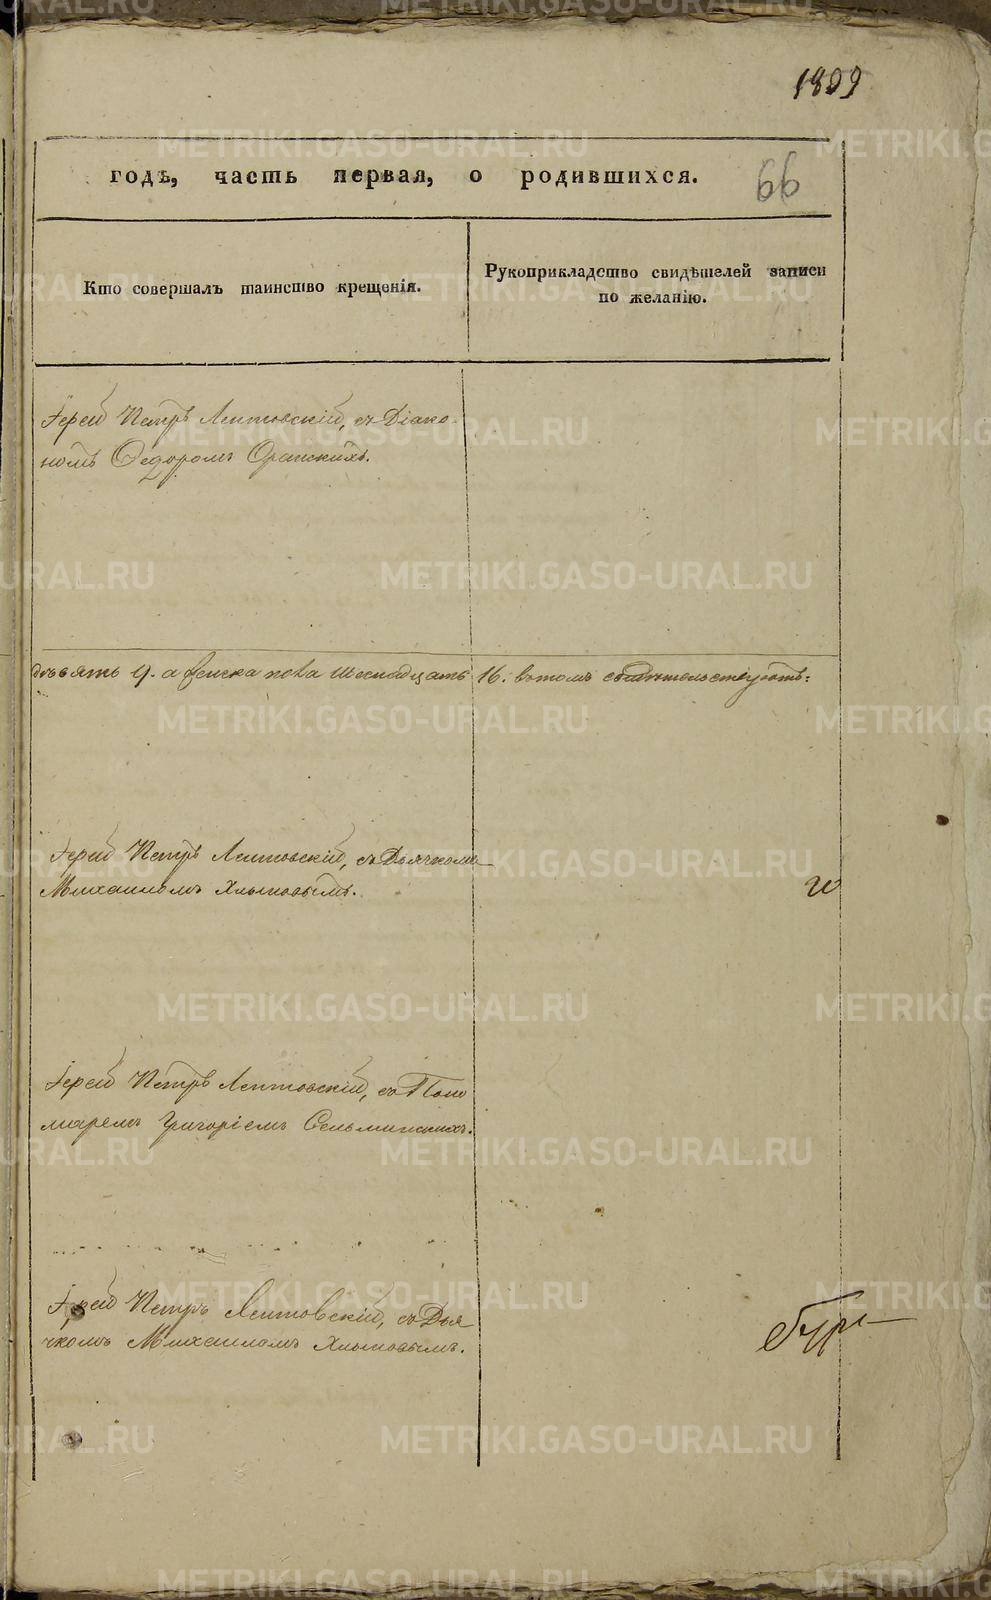 1899
годѣ, часть первая, о родившихся.
66
Кто совершалъ таинство крещенія.
Рукоприкладство свидѣтелей записи
по желанію.
Іерей Петръ Лептовскій, съ Діако-
номъ Ѳедоромъ
девять 9. а женска пола шеснадцать 16. вътомъ свидѣтельствуютъ:
Іерей Петръ Лептовскій, съ Дьячкомъ
Михаиломъ Хлыновымъ.
Іерей Петръ Лептовскій, съ Поно
маремъ Григоріемъ
Іерей Петръ Лептовскій, съ Дья
чкомъ Михаиломъ Хлыновымъ.
METRIKI.GASO-URAL.RU